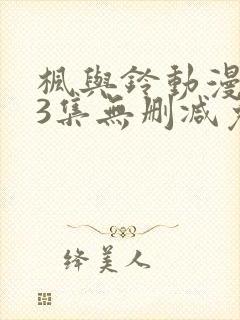 楓與鈴動漫
3集無刪減
绛美人